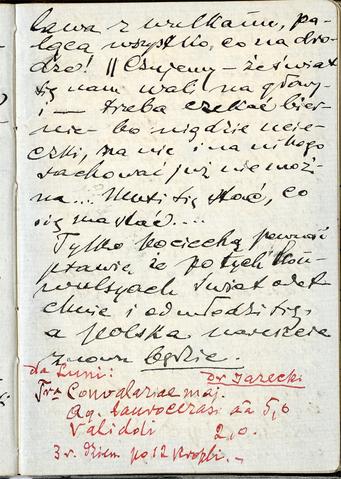 lawa z wulkanu, pa-
lącą wszystko, co na dro-
dze! || Czujemy – że świat
się nam wali na głowy
i — trzeba czekać bier-
nie – bo nigdzie ucie-
czki, na nic i na nikogo
rachować już nie moż-
na... Musi się stać, co
się ma stać....
Tylko pociechą pewność
prawie, że po tych kon-
wulsjach świat odet-
chnie i odmłodzi się,
a Polska nareszcie
znowu będzie.
dla Luni:
Dr Jarecki
Tra Convalariae maj.
Aq. laurocerasi aa 5,0
Validoli 2,0.
3 r. dzien. po 12 kropli. –